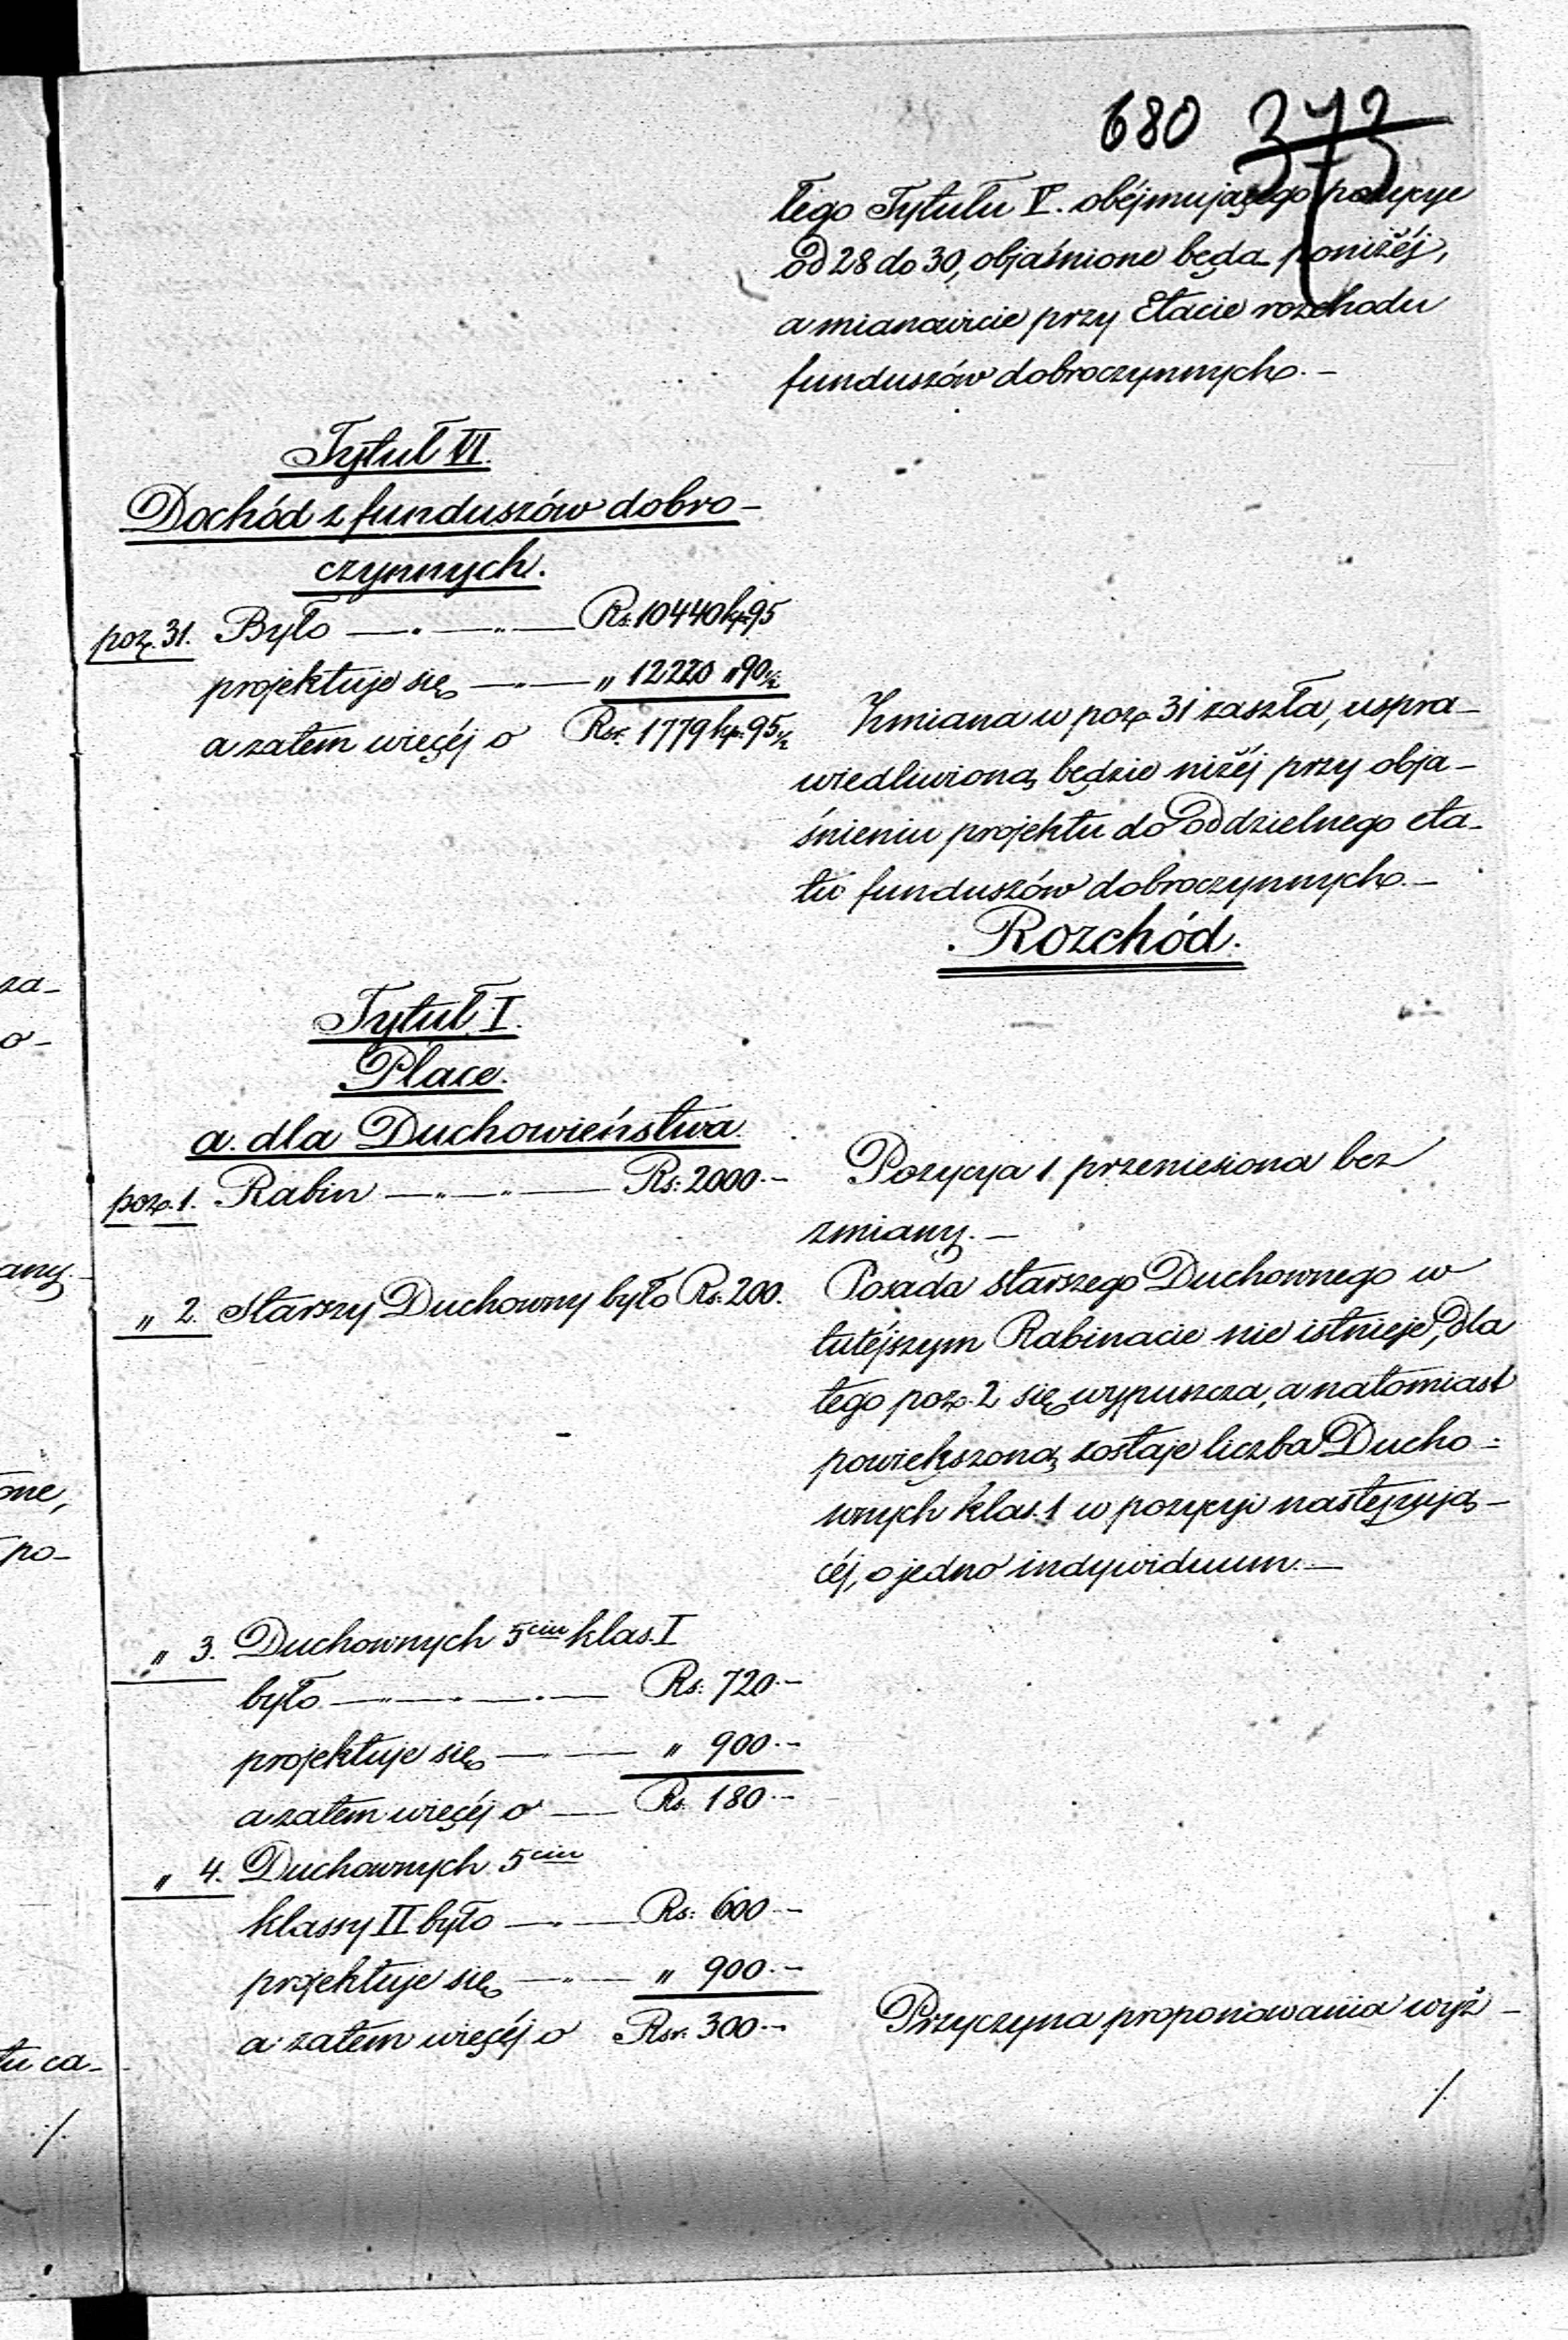 680 373
tego Tytułu V. obéjmującego pozycye
od 28 do 30, objaśnione będą poniżéj,
a mianowicie przy Etacie rozchodu
funduszów dobroczynnych. –
Tytuł VI.
Dochód z funduszów dobro–
czynnych.
poz. 31. Było — „ — „ — Rs. 10440 kp. 95
projektuje się — „ — „ 12220 „ 90 1/2
a zatem więcéj o Rsr. 1779 kp. 95 1/2
Zmiana w poz. 31 zaszła, uspra–
wiedliwioną będzie niżéj przy obja–
śnieniu projektu do oddzielnego eta–
tu funduszów dobroczynnych. –
Rozchód.
Tytuł I.
Płace.
a. dla Duchowieństwa.
poz. 1. Rabin — „ — „ — Rs: 2000. –
Pozycya 1 przeniesiona bez
zmiany. –
„ 2. Starszy Duchowny było Rs. 200.
Posada starszego Duchownego w
tutéjszym Rabinacie nie istnieje, dla
tego poz. 2 się wypuszcza, a natomiast
powiększoną zostaje liczba Ducho=
wnych klas. 1 w pozycyi następują–
céj, o jedno indywiduum. —
„ 3. Duchownych 5ciu klas. I
było — „ — „ — „ — Rs: 720. –
projektuje się — „ — „ 900. –
a zatem więcéj o — Rs. 180. –
„ 4. Duchownych 5ciu
klassy II było — „ — Rs: 600. –
projektuje się — „ — „ 900. –
a zatem więcéj o Rsr. 300. –
Przyczyna proponowania wyż–
./.
za–
o–
any. –
one,
po–
tu ca–
./.